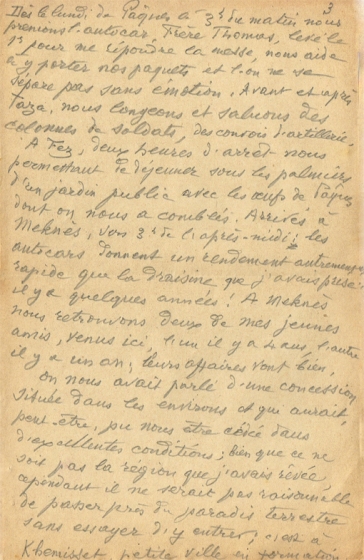 3
Dès le lundi de Pâques à 3h du matin nous
prenions l'autocar, Frère Thomas, levé
pour me répondre la messe, nous aide
à y porter nos paquets et l'on ne se
sépare pas sans émotion. Avant et après
Taza, nous longeons et saluons des
colonnes de soldats, des convois d'artillerie.
A Fez, deux heures d'arrêt nous
permettent de déjeuner sous les palmiers
d'un jardin public avec les œufs de Pâques
dont on nous a comblés. Arrivés à
Meknès, vers 3h de l'après-midi ; les
autocars donnent un rendement autrement
rapide que la draisine que j'avais prise
il y a quelques années ! A Meknès
nous retrouvons deux de mes jeunes
amis, venus ici, l'un il y a 4 ans, l'autre
il y a un an ; leurs affaires vont bien.
on nous avait parlé d'une concession
située dans les environs et qui aurait,
peut-être, pu nous être cédée dans
d'excellentes conditions ; bien que ce ne
soit pas la région que j'avais rêvée,
cependant il ne serait pas raisonnable
de passer près du paradis terrestre
sans essayer d'y entrer ; c'est à
Khemisset, petite ville en formation